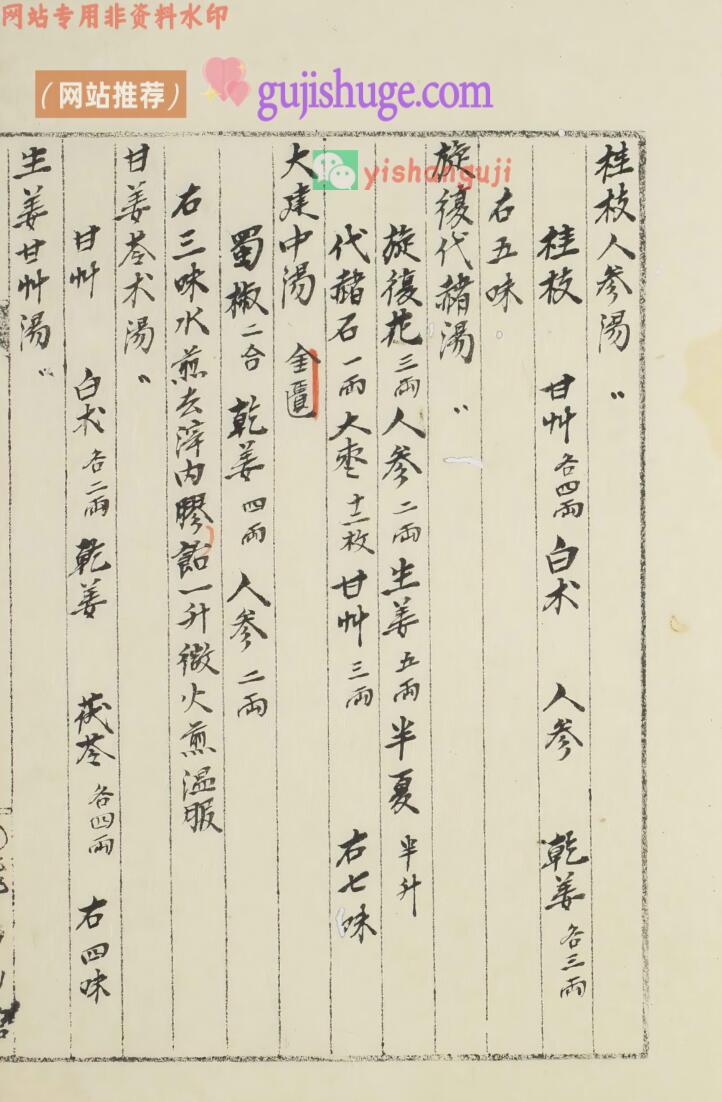 网站专用非资料水印
（网站推荐）
gujishuge.com
yishanguji
桂枝人参湯〃
桂枝 甘艸各四兩 白术 人参 乾姜各三兩
右五味
旋復代赭湯〃
旋復花三兩 人参二兩 生姜五兩 半夏半升
代赭石一兩 大枣十二枚 甘艸三兩 右七味
大建中湯 金匱
蜀椒二合 乾姜四兩 人参二兩
右三味水煎去滓内膠飴一升微火煎温服
甘姜苓术湯〃
甘艸 白术各二兩 乾姜 茯苓各四兩 右四味
生姜甘艸湯〃